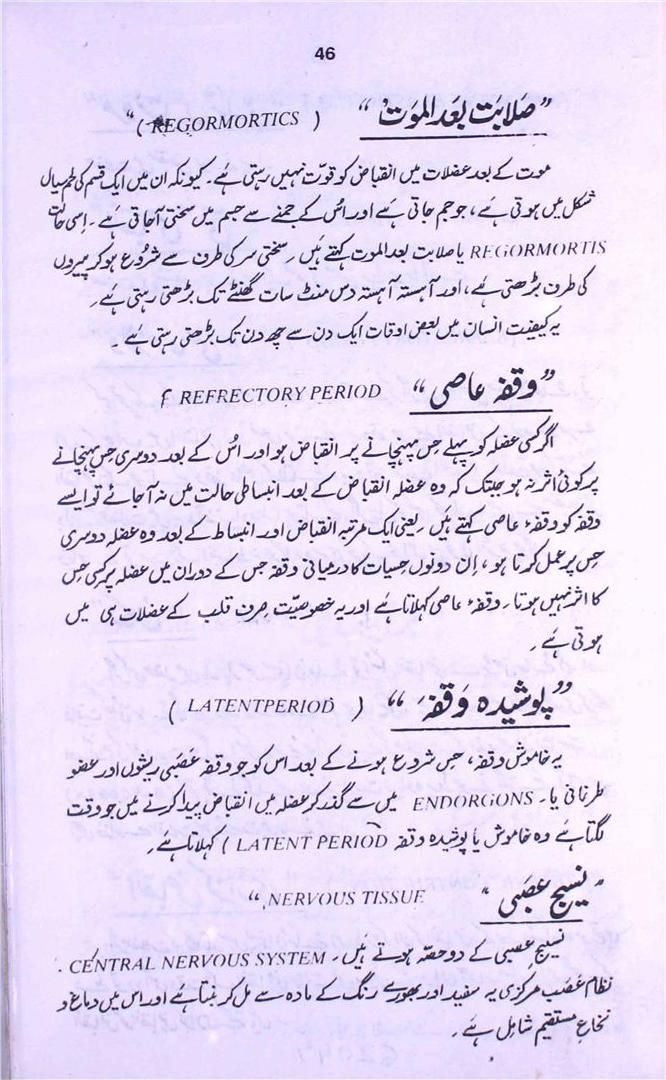 46
”صَلابَت بعَد الموَت“ ( REGORMORTICS ) “
موت کے بعد عضلات میں انقباض کو قوّت نہیں رہتی ہے۔ کیونکہ ان میں ایک قسم کی لحم سیال
شکل میں ہوتی ہے، جو جم جاتی ہے اور اُس کے جمنے سے جسم میں سختی آجاتی ہے۔ اِسی حالت
REGORMORTIS یا صلابت بعد الموت کہتے ہیں۔ سختی سر کی طرف سے شروع ہو کر پیروں
کی طرف بڑھتی ہے، اور آہستہ آہستہ دس منٹ سات گھنٹے تک بڑھتی رہتی ہے۔
یہ کیفیت انسان میں بعض اوقات ایک دن سے چھ دن تک بڑھتی رہتی ہے۔
”وقفہ عاصی“ REFRECTORY PERIOD
اگر کسی عضلہ کو پہلے حِس پہنچانے پر انقباض ہو اور اُس کے بعد دوسری حِس پہنچانے
پر کوئی اثر نہ ہو جبتک کہ وہ عضلہ انقباض کے بعد انبساطی حالت میں نہ آجائے تو ایسے
وقفہ کو وقفۂ عاصی کہتے ہیں۔ یعنی ایک مرتبہ انقباض اور انبساط کے بعد وہ عضلہ دوسری
حِس پر عمل کرتا ہو، اِن دولوں حِسیات کا درمیانی وقفہ جس کے دوران میں عضلہ پر کسی حِس
کا اثر نہیں ہوتا۔ وقفۂ عاصی کہلاتا ہے اور یہ خصوصیّت صِرف قلب کے عضلات ہی میں
ہوتی ہے۔
”پوشیدہ وَقفہ“ ( LATENTPERIOD )
یہ خاموش وقفہ، حِس شروع ہونے کے بعد اس کو جو وقفہ عَصَبی ریشوں اور عضو
طرنانی یا۔ ENDORGONS میں سے گذر کر عضلہ میں انقباض پیدا کرنے میں جو وقت
لگتا ہے وہ خاموش یا پوشیدہ وقفہ LATENT PERIOD ) کہلاتا ہے۔
”نسیج عصَبی“ NERVOUS TISSUE “
نسیج عصبی کے دو حصّہ ہوتے ہیں۔ CENTRAL NERVOUS SYSTEM .
نظام عَصَب مرکزی یہ سفید اور بھورے رنگ کے مادہ سے مل کر بنتا ہے اور اس میں دماغ و
نخاع مستقیم شامِل ہے۔